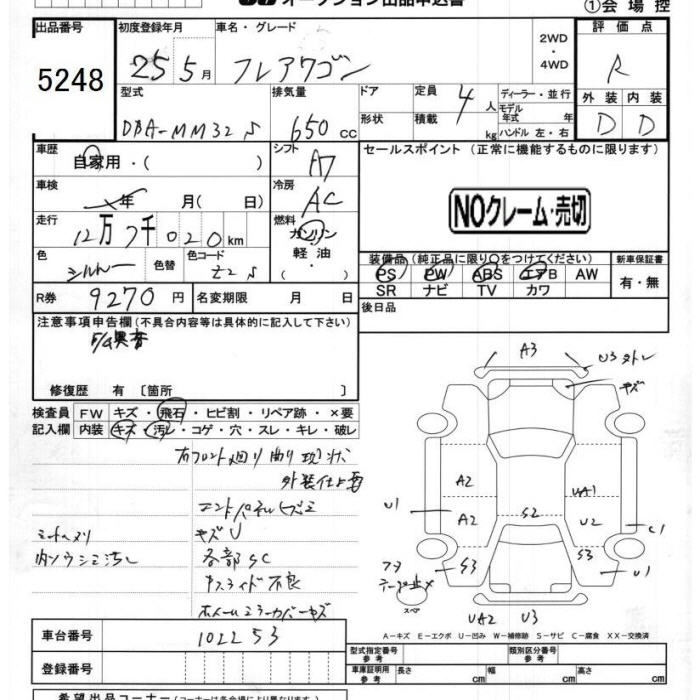 オークション出品申込書
①会場控
出品番号
5248
初度登録年月
25 5月
車名・グレード
フレアワゴン
2WD
・
4WD
評価点
R
外装 内装
D D
型式
DBA-MM32S
排気量
650cc
ドア
形状
定員
4人
積載
kg
ディーラー・並行
モデル
年式 年
ハンドル 左・右
車歴
自家用・( )
シフト
A7
セールスポイント (正常に機能するものに限ります)
NOクレーム・売切
車検
年 月( 日)
冷房
AC
走行
12万7千020km
燃料
ガソリン
軽油
・( )
色
シルバー
色替
色コード
Z2S
装備品(純正品に限り○をつけてください)
PS PW ABS エアB AW
SR ナビ TV カワ
新車保証書
有・無
R券
9270円
名変期限 月 日
後日品
注意事項申告欄(不具合内容等は具体的に記入して下さい)
異音
修復歴 有〔箇所 〕
検査員
記入欄
FW キズ・飛石・ヒビ割・リペア跡・×要
内装 キズ・汚レ・コゲ・穴・スレ・キレ・破レ
右フロント廻り曲り現状
外装仕上要
エンドパネルヒズミ
キズU
各部SC
スライド不良
ホイールミラーカバーキズ
シートヘタリ
A3
U3
キズ
A2
A2
UA1
U2
S2
U1
C1
S3
S3
U1
UA2 U3
スペア
A-キズ E-エクボ U-凹み W-補修跡 S-サビ C-腐食 XX-交換済
車台番号
102253
登録番号
型式指定番号
参考
類別区分番号
参考
車庫証明用
参考
長さ cm 幅 cm 高さ cm
希望出品コーナー(コーナーは各会場により異なります)